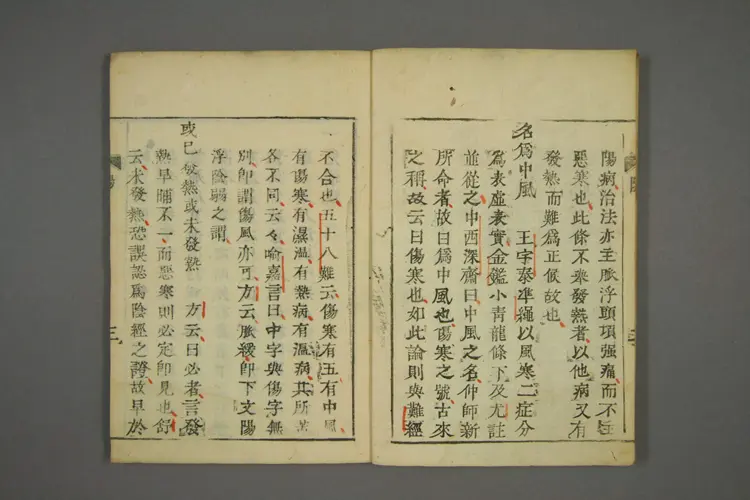 陽病治法亦主脈浮頭項强痛而不
惡寒也此條不來發熱者以他病又有
發熱而難爲正候故也
名爲中風　王字泰準繩以風寒二症分
爲表虛表實金鑑小青龍條下及尤註
並從之中西深齋曰中風之名仲師新
所命者故曰爲中風也傷寒之號古來
之稱故云曰傷寒也如此論則與難經
不合也五十八難云傷寒有五有中風
有傷寒有濕溫有熱病有溫病其所苦
各不同云々喻嘉言曰中字與傷字無
別即謂傷風亦可方云脈緩即下文陽
浮陰弱之謂
或已發熱或未發熱　方云曰必者言發
熱早晡不一而惡寒則必定即見也舒
云未發熱恐誤認爲陰經之故早於
三